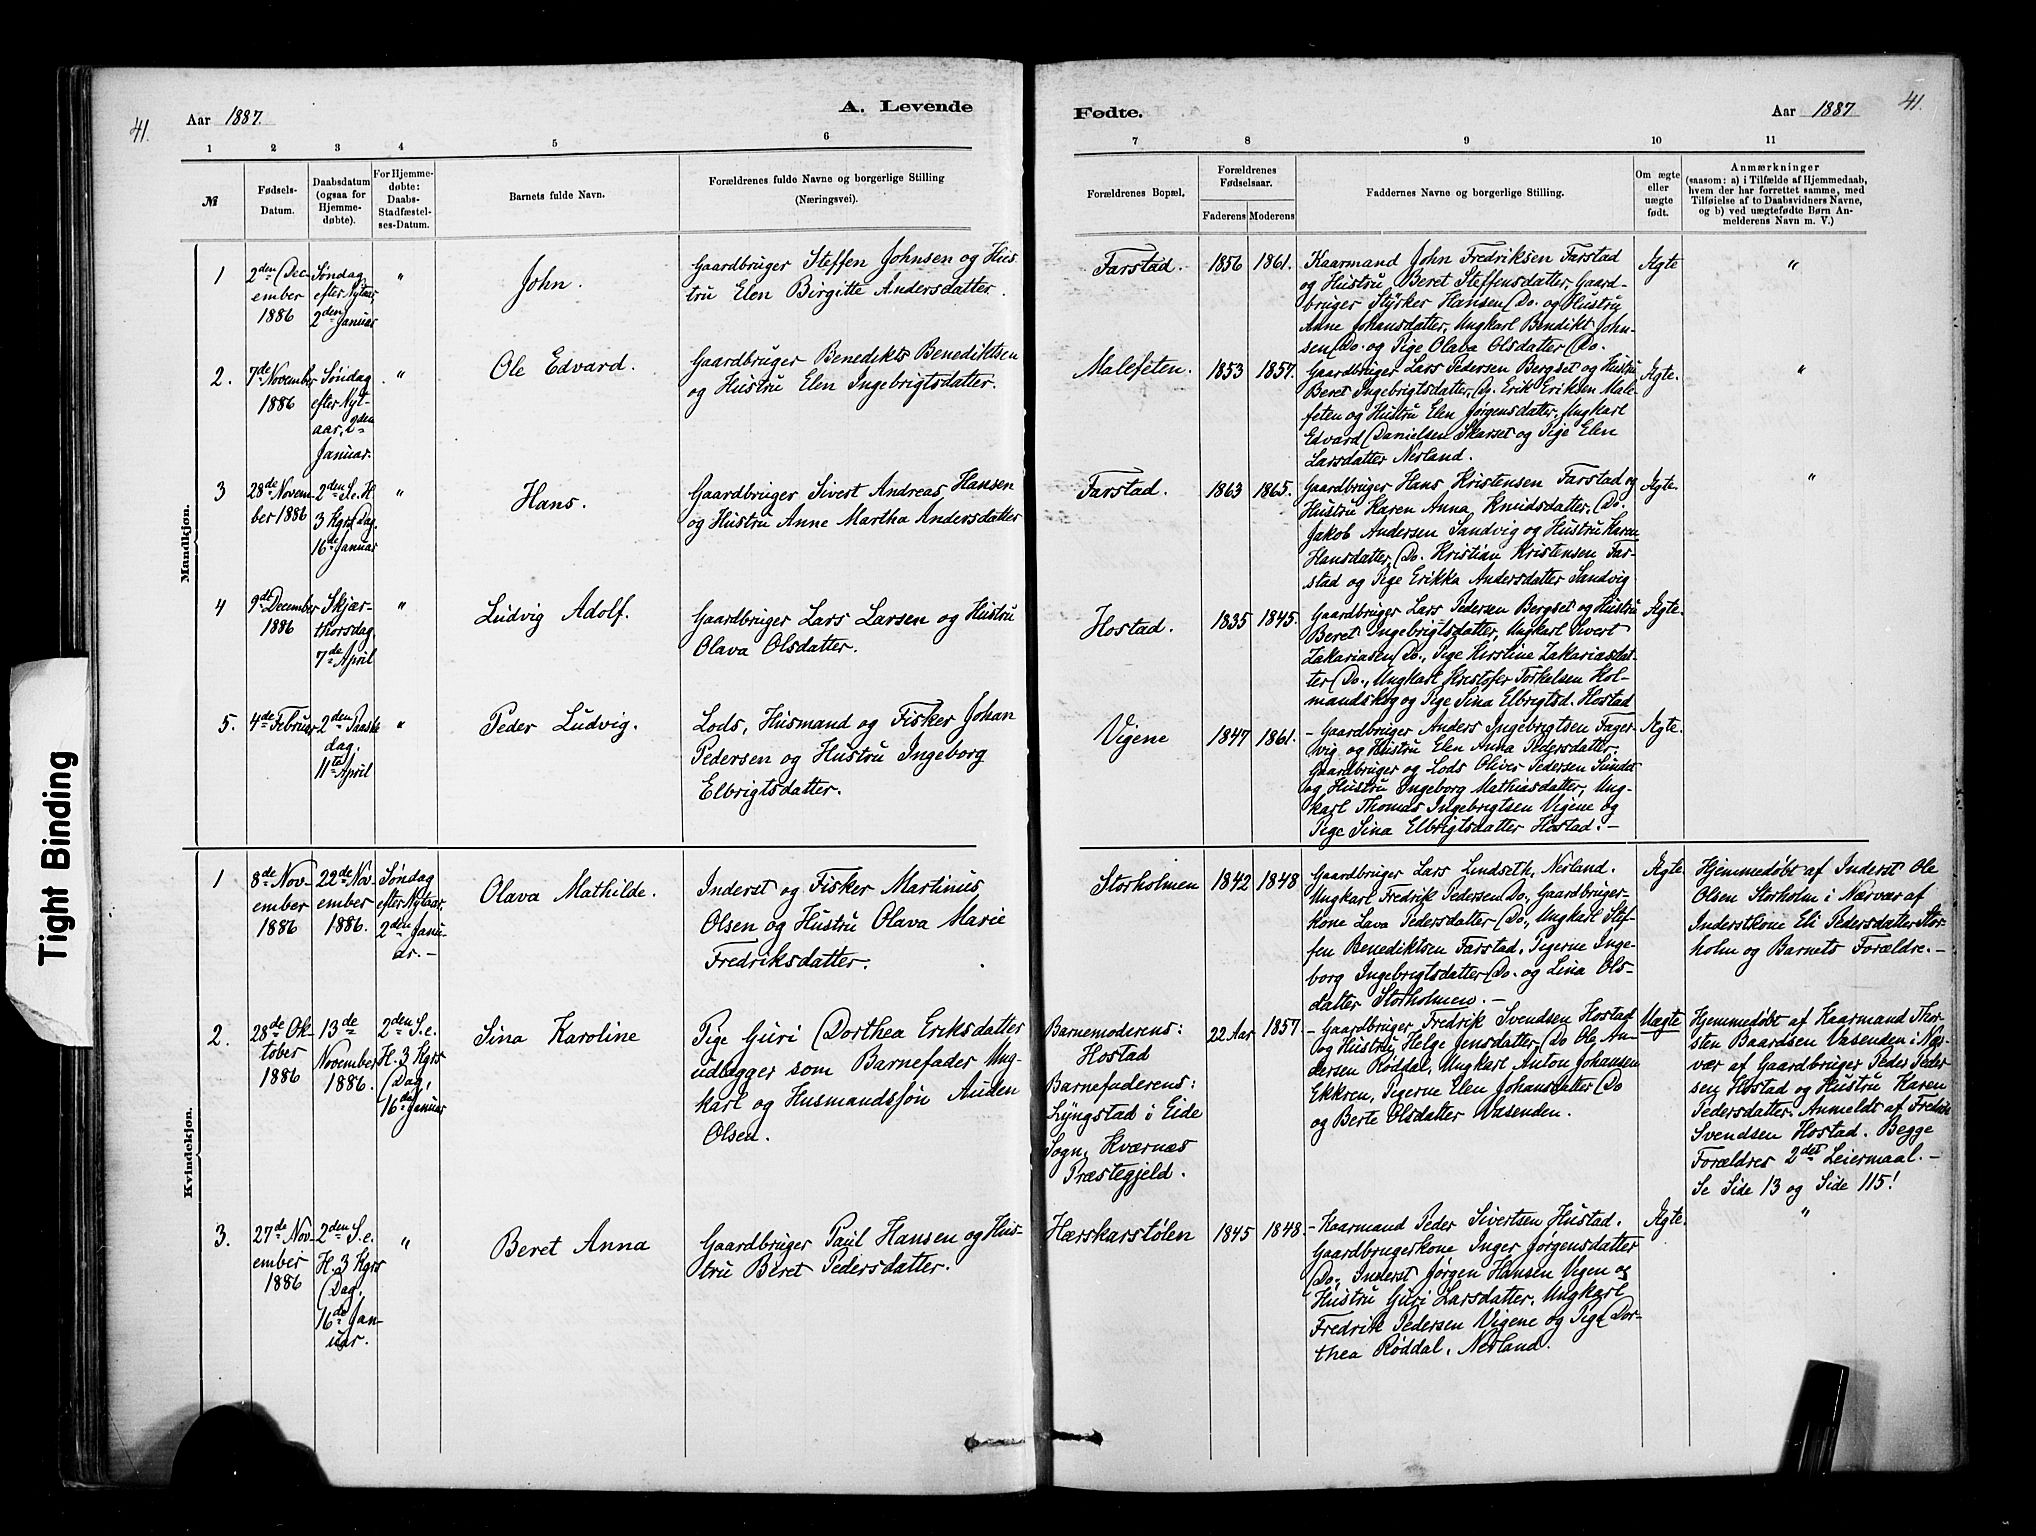 41.
Aar 1887.
A. Levende
Fødte.
Aar 1887
41.
1 2 3 4 5 6 7 8 9 10 11
№
Fødsels-
Datum.
Daabsdatum
(ogsaa for
Hjemme-
døbte).
For Hjemme-
døbte:
Daabs-
Stadfæstel-
ses-Datum.
Barnets fulde Navn.
Forældrenes fulde Navne og borgerlige Stilling
(Næringsvei).
Forældrenes Bopæl.
Forældrenes
Fødselsaar.
Faderens Moderens
Faddernes Navne og borgerlige Stilling.
Om ægte
eller
uægte
født.
Anmærkninger
(saasom: a) i Tilfælde af Hjemmedaab,
hvem der har forrettet samme, med
Tilføielse af to Daabsvidners Navne,
og b) ved uægtefødte Børn An-
melderens Navn m. V.)
Mandkjøn.
1
2den Dec-
ember
1886
Søndag
efter Nytaar
2den Januar
"
John.
Gaardbruger Steffen Johnsen og Hus
tru Elen Birgitte Andersdatter.
Farstad.
1856 1861.
Kaarmand John Fredriksen Farstad
og Hustru Beret Steffensdatter, Gaard-
bruger Styrker Hansen Do. og Hustru
Anne Johansdatter, Ungkarl Bendikt John-
sen Do. og Pige Olava Olsdatter Do.
Ægte
"
2.
7de November
1886
Søndag
efter Nyt-
aar, 2den
Januar.
"
Ole Edvard.
Gaardbruger Benedikts Benediktsen
og Hustru Elen Ingebrigtsdatter.
Malefeten.
1853 1857.
Gaardbruger Lars Pedersen Bergset og Hustru
Beret Ingebrigtsdatter, Do. Erik Eriksen Male-
feten og Hustru Elen Jørgensdatter, Ungkarl
Edvard Danielsen Skarset og Pige Elen
Larsdatter Nerland.
Ægte.
"
3
28de Novem-
ber 1886
2den S. e. H
3 Kgrs Dag.
16de Januar
"
Hans.
Gaardbruger Sivert Andreas Hansen
og Hustru Anne Martha Andersdatter
Farstad.
1863 1865.
Gaardbruger Hans Kristensen Farstad og
Hustru Karen Anna Knudsdatter, Do.
Jakob Andersen Sandvig og Hustru Karen
Hansdatter, Do. Kristian Kristensen Far-
stad og Pige Erikka Andersdatter Sandvig
Ægte.
"
4
9de December
1886
Skjær-
thorsdag
7de April
"
Ludvig Adolf.
Gaardbruger Lars Larsen og Hustru
Olava Olsdatter.
Hostad.
1835 1845.
Gaardbruger Lars Pedersen Bergset og Hustru
Beret Ingebrigtsdatter, Ungkarl Sivert
Zakariasen Do., Pige Kirstine Zakariasdat-
ter Do., Ungkarl Kristofer Torkelsen Hol-
mandskog og Pige Sina Elbrigtsd. Hostad
Ægte.
5.
4de Februar
2den Paaske
dag.
11te April
"
Peder Ludvig.
Lods, Husmand og Fisker Johan
Pedersen og Hustru Ingeborg
Elbrigtsdatter.
Vigene
1847 1861.
- Gaardbruger Anders Ingebrigtsen Fager-
vig og Hustru Elen Anna Pedersdatter,
Gaardbruger og Lods Oliver Pedersen Sundet
og Hustru Ingeborg Mathiasdatter, Ung-
karl Thomas Ingebrigtsen Vigene og
Pige Sina Elbrigtsdatter Hostad. -
Ægte.
Kvindekjøn.
1
8de Nov-
ember
1886
22de Nov-
ember
1886.
Søndag
efter Nytaar,
2den Janu-
ar. -
Olava Mathilde.
Inderst og Fisker Martinus
Olsen og Hustru Olava Marie
Fredriksdatter.
Storholmen
1842 1848
Gaardbruger Lars Lindseth, Nerland.
Ungkarl Fredrik Pedersen Do., Gaardbruger-
kone Lava Pedersdatter Do., Ungkarl Stef-
fen Benediktsen Farstad, Pigerne Inge-
borg Ingebrigtsdatter Do. og Lina Ols-
datter Storholmen. -
Ægte.
Hjemmedøbt af Inderst Ole
Olsen Storholm i Nærvær af
Inderstkone Eli Pedersdatter Stor-
holm og Barnets Forældre. -
2.
28de Ok-
tober
1886
13de
November
1886.
2den S. e.
H. 3 Kgrs
Dag,
16de Januar
Sina Karoline
Pige Guri Dorthea Eriksdatter
udlægger som Barnefader Ung
karl og Husmandssøn Auden
Olsen.
Barnemoderens:
Hostad
Barnefaderens:
Lyngstad i Eide
Sogn, Kværnæs
Præstegjeld.
22 Aar 1857
- Gaardbruger Fredrik Svendsen Hostad
og Hustru Helge Jensdatter, Do Ole An-
dersen Røddal, Ungkarl Anton Johansen
Ekkren, Pigerne Elen Johansdatter Do
og Berte Olsdatter Vasenden.
Uægte
Hjemmedøbt af Kaarmand Thor
sten Baardsen Vasenden i Nær-
vær af Gaardbruger Peder Peder
sen Hostad og Hustru Karen
Pedersdatter. Anmeldt af Fredrik
Svendsen Hostad. Begge
Forældres 2det Leiermaal. -
Se Side 13 og Side 115!
3.
27de Nov-
ember
1886
2den S. e.
H. 3 Kgrs
Dag,
16de Jan-
uar.
"
Beret Anna
Gaardbruger Paul Hansen og Hus-
tru Beret Pedersdatter.
Hærskarstølen
1845 1848.
- Kaarmand Peder Sivertsen Hustad.
Gaardbrugerkone Inger Jørgensdatter
Do., Inderst Jørgen Hansen Vigen og
Hustru Guri Larsdatter, Ungkarl
Fredrik Pedersen Vigene og Pige Dor-
thea Røddal, Nerland.
Ægte.
"
Tight Binding